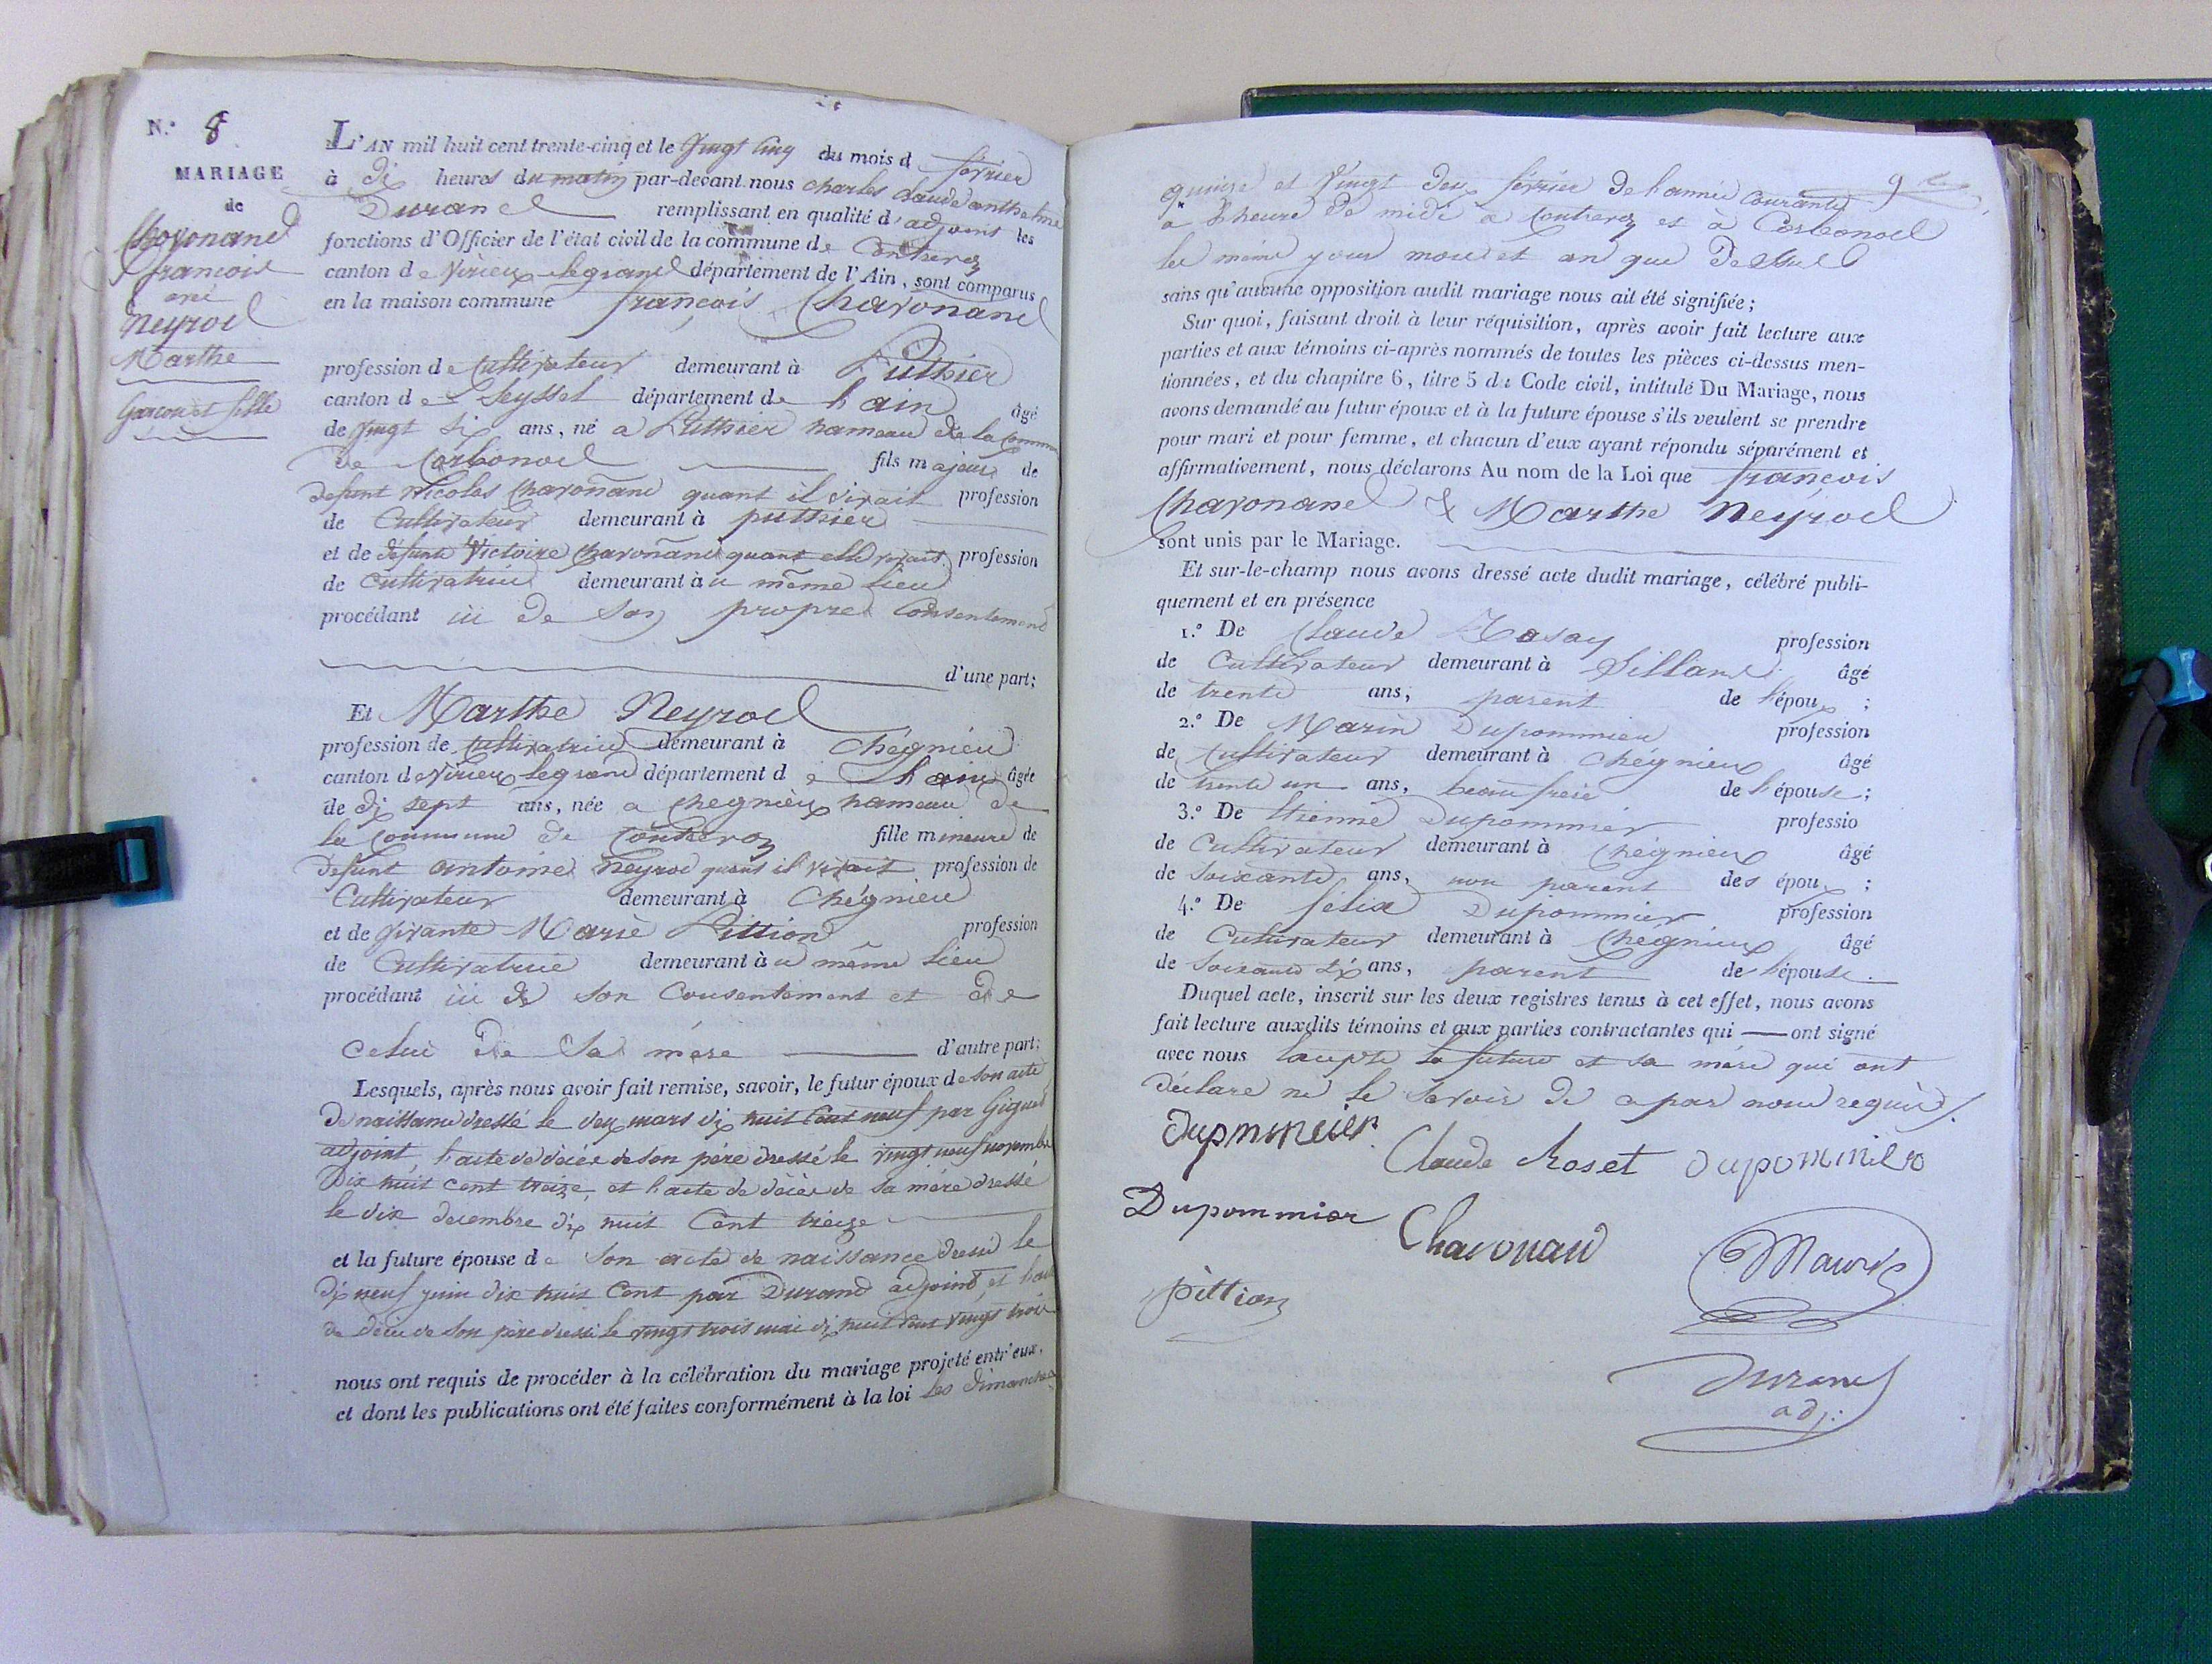 N.º 8
MARIAGE
de
Chavonand
françois
avec
Neyrod
Marthe
Garçon et fille
L'AN mil huit cent trente-cinq et le vingt cinq du mois d février
à dix heures du matin par-devant nous charles claude anthelme
Durand remplissant en qualité d'adjoint les
fonctions d'Officier de l'état civil de la commune de Contrevoz
canton de virieu-legrand département de l'Ain, sont comparus
en la maison commune françois Chavonand
profession de Cultivateur demeurant à Puthier
canton de Seyssel département de l'ain âgé
de vingt six ans, né a Puthier hameau de la Commune
de Corbonod fils majeur de
defunt Nicolas Chavonand quant il vivait profession
de Cultivateur demeurant à puthier
et de défunte Victoire Chavonand quant elle vivait profession
de Cultivatrice demeurant à u même lieu
procédant ici de son propre Consentement
d'une part;
Et Marthe Neyrod
profession de Cultivatrice demeurant à Chégnieu
canton de virieu legrand département de l'ain âgée
de dix sept ans, née a chegnieu hameau de
la Commune de Contrevoz fille mineure de
defunt antoine Neyrod quant il vivait profession de
Cultivateur demeurant à Chégnieu
et de vivante Marie Pittion profession
de Cultivatrice demeurant à u même lieu
procédant ici de son Consentement et de
celui de sa mère d'autre part;
Lesquels, après nous avoir fait remise, savoir, le futur époux de son acte
de naissance dressé le deux mars dix huit cent neuf par Giguet
adjoint, l'acte de décès de son père dressé le vingt neuf novembre
dix huit cent treize, et l'acte de décès de sa mère dressé
le dix decembre dix huit Cent treize
et la future épouse de son acte de naissance dressé le
dix neuf juin dix huit Cent par Durand adjoint, et l'acte
de décès de son père dressé le vingt trois mai dix huit cent vingt trois
nous ont requis de procéder à la célébration du mariage projeté entr'eux,
et dont les publications ont été faites conformément à la loi les dimanches
9
quinze et vingt deux février de l'année Courante
a l'heure de midi a Contrevoz et à Corbonod
les même jour mois et an que dessus
sans qu'aucune opposition audit mariage nous ait été signifiée;
Sur quoi, faisant droit à leur réquisition, après avoir fait lecture aux
parties et aux témoins ci-après nommés de toutes les pièces ci-dessus men-
tionnées, et du chapitre 6, titre 5 du Code civil, intitulé Du Mariage, nous
avons demandé au futur époux et à la future épouse s'ils veulent se prendre
pour mari et pour femme, et chacun d'eux ayant répondu séparément et
affirmativement, nous déclarons Au nom de la Loi que françois
Chavonand & Marthe Neyrod
sont unis par le Mariage.
Et sur-le-champ nous avons dressé acte dudit mariage, célébré publi-
quement et en présence
1.º De Claude profession
de Cultivateur demeurant à Sillans âgé
de trente ans, parent de l'époux ;
2.º De Marin Dupommier profession
de Cultivateur demeurant à chégnieu âgé
de trente un ans, beau frere de l'épouse;
3.º De Etienne Dupommier professio
de Cultivateur demeurant à Chégnieu âgé
de Soixante ans, non parent des époux ;
4.º De felix Dupommier profession
de Cultivateur demeurant à Chégnieu âgé
de Soixante dix ans, parent de l'épouse.
Duquel acte, inscrit sur les deux registres tenus à cet effet, nous avons
fait lecture auxdits témoins et aux parties contractantes qui ont signé
avec nous Excepte la future et sa mère qui ont
déclare ne le savoir de ce par nous requis.
Dupommier
Claude Roset Dupommier
Dupommier Chavonand
pittion
Durand
adj: